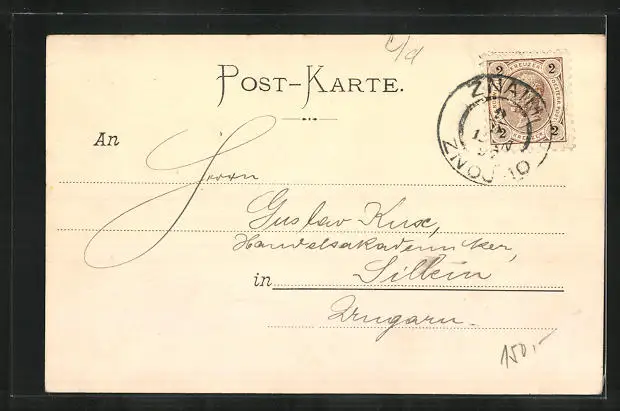 c/d
POST-KARTE.
2 KREUZER 2
2
ZNAIM
ZNOJMO
An
Herrn
Gustav Kux,
Handelsakademiker,
in Sillein
Ungarn.
150,-